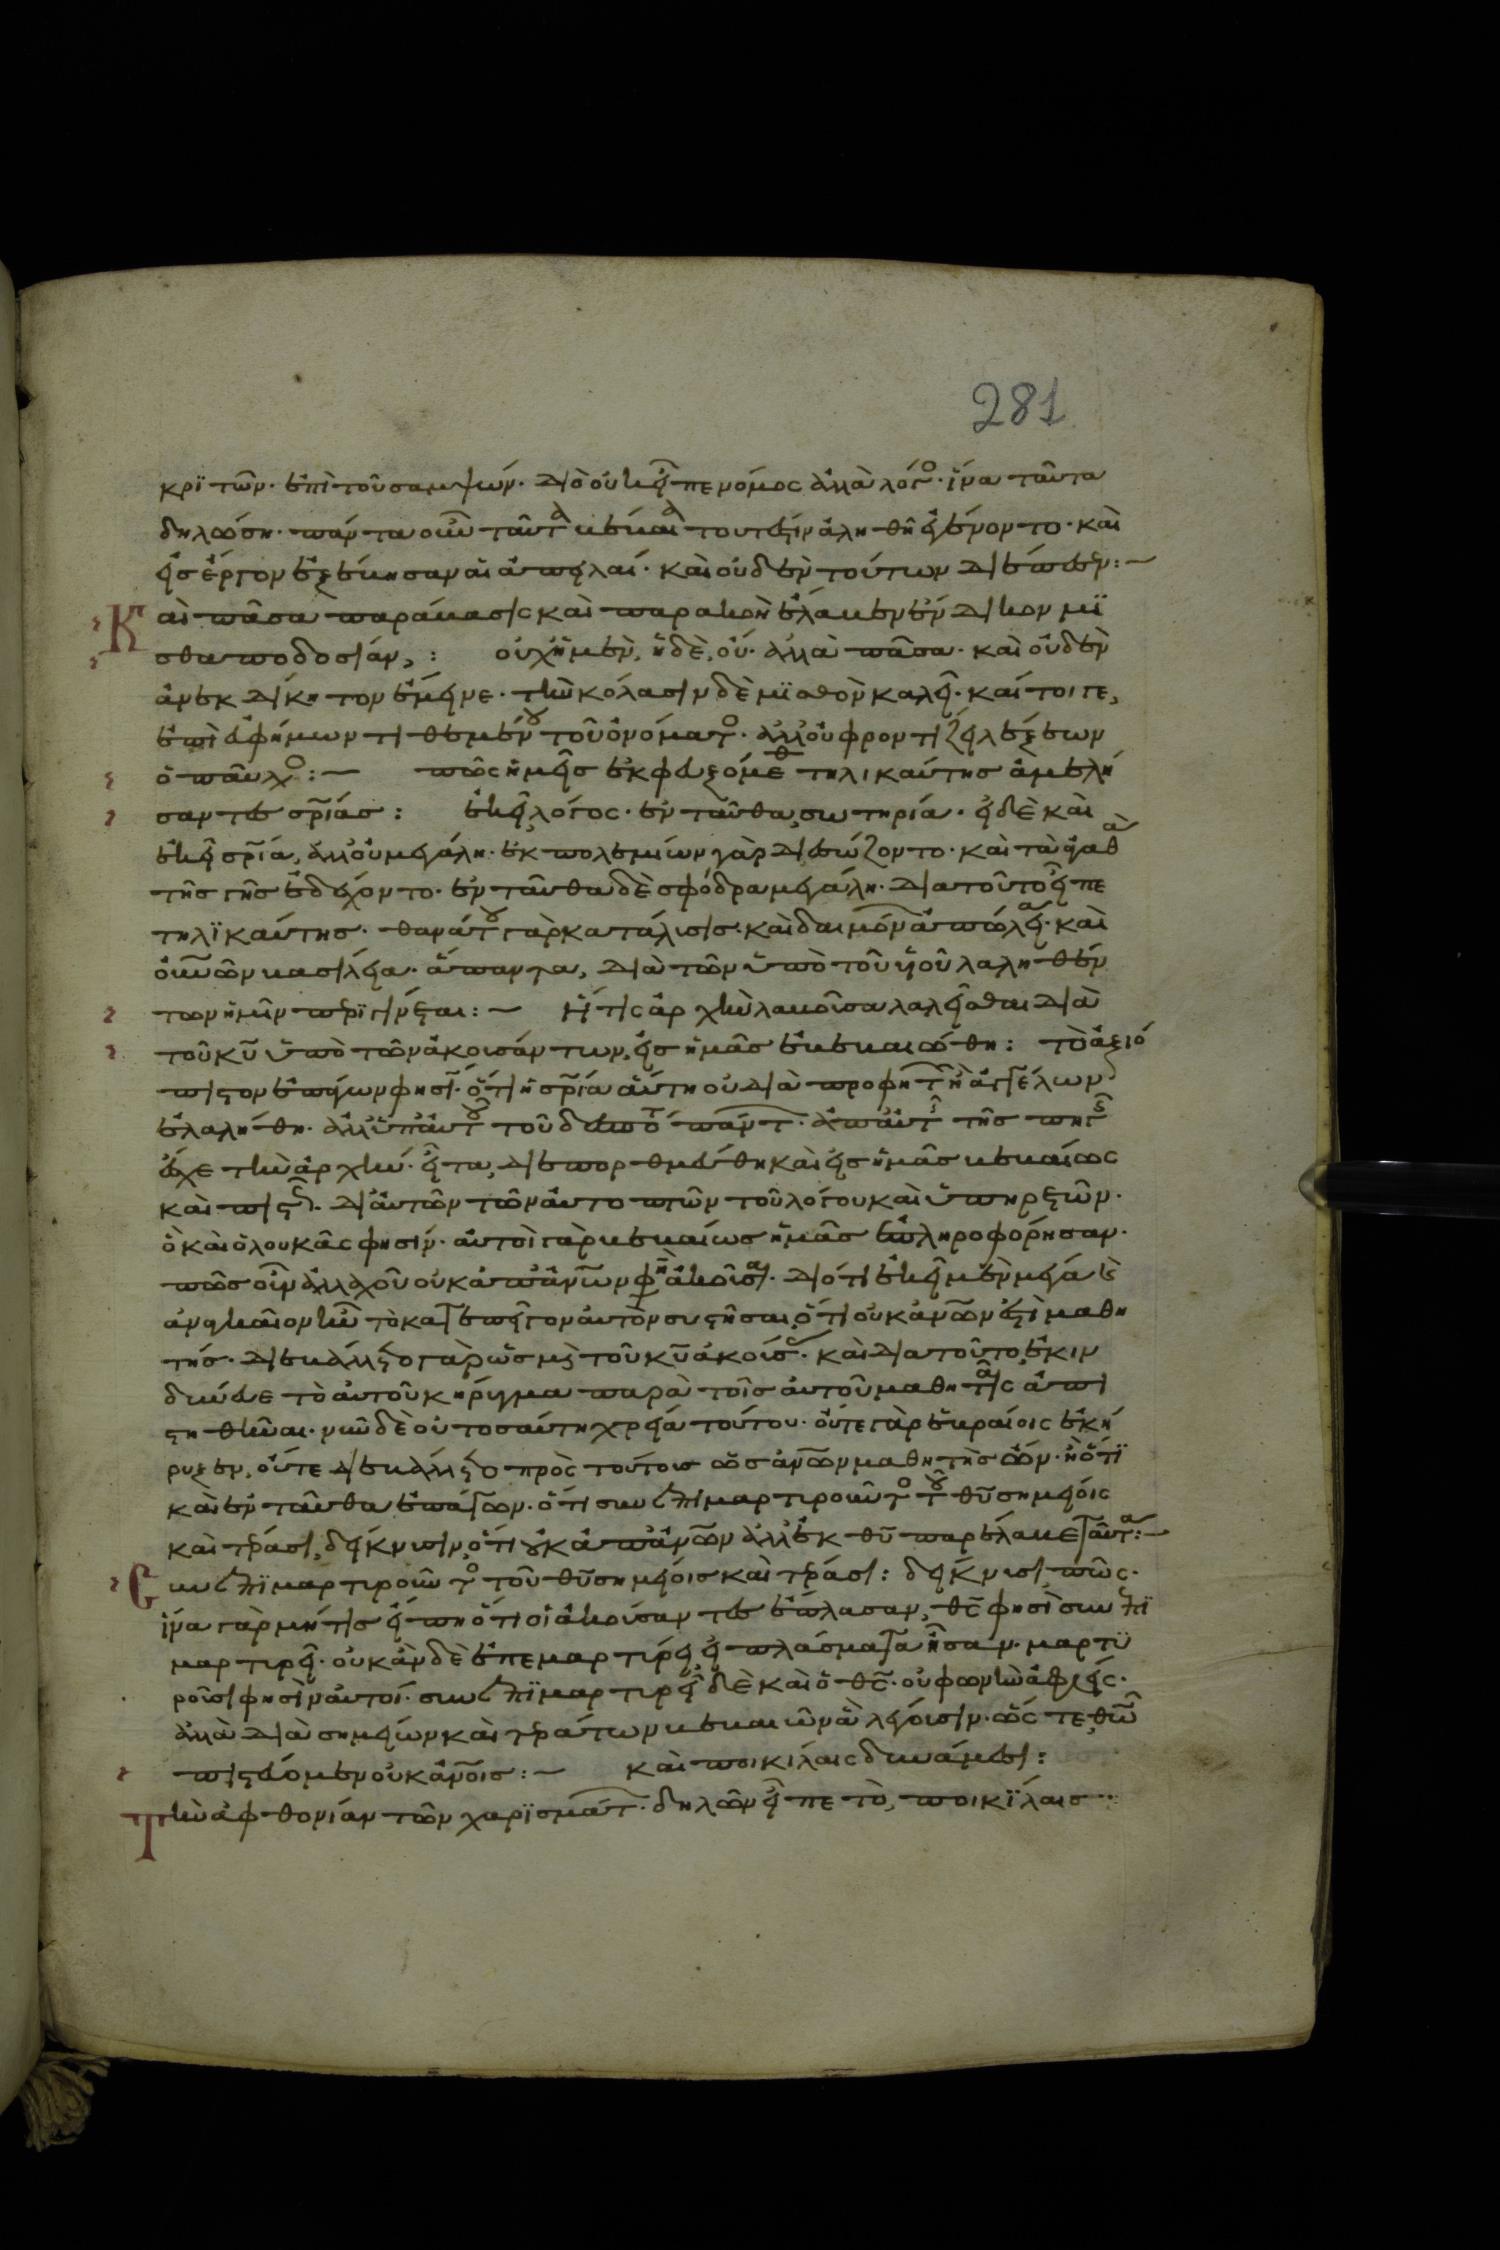 281
κρϊτῶν· ἐπὶ τοῦ σαμψών· διὸ οὐκ εἶπε νόμος ἀλλὰ λόγο· ἵνα ταῦτα
δηλώση· πάντα οὖν ταῦτα βέβαια τουτέστιν ἀληθῆ ἐγένοντο· καὶ
εἰς ἔργον ἐξέβησαν αἱ ἀπειλαί· καὶ οὐδὲν τούτων διέπεσεν:~
Καὶ πᾶσα παράβασις καὶ παρακοὴ ἔλαβεν ἔνδικον μϊ
σθαποδοσίαν,: οὐχ ἡ μὲν, ἡ δὲ, οὔ· ἀλλὰ πᾶσα· καὶ οὐδὲν
ἀνεκδίκητον ἔμεινε· τὴν κόλασιν δὲ μϊσθὸν καλεῖ· καίτοιγε,
ἐπὶ εὐφήμων τιθεμένου τοῦ ὀνόματο· ἀλλ' οὐ φροντίζει λέξεων
ὁ παῦλο:~ πῶς ἡμεῖς ἐκφευξόμεθ τηλικαύτης ἀμελή
σαντες σρίας: ἐκεῖ, λόγος· ἐνταῦθα, σωτηρία· εἰ δὲ καὶ
ἐκεῖ σρία, ἀλλ' οὐ μεγάλη· ἐκ πολεμίων γὰρ διεσώζοντο· καὶ τὰ ἀγαθὰ
τῆς γῆς ἐδέχοντο· ἐνταῦθα δὲ σφόδρα μεγάλη· διατοῦτο εἶπε
τηλϊκαύτης· θανάτου γὰρ κατάλυσις· καὶ δαιμόνων ἀπώλεια· καὶ
οὐνῶν βασιλεία· ἅπαντα, διὰ τῶν ὑπὸ τοῦ υἱοῦ λαληθέν
των ἡμῖν περϊγίνεται:~ Ἥτις ἀρχὴν λαβοῦσα λαλεῖσθαι διὰ
τοῦ κυ ὑπὸ τῶν ἀκουσάντων, εἰς ἡμᾶς ἐβεβαιώθη: τὸ ἀξιό
πιστον ἐπάγων φησί· ὅτι ἡ σρία αὕτη οὐ διὰ προφητῶν ἢ ἀγγέλων
ἐλαλήθη· ἀλλ' ὑπ' αὐτοῦ τοῦ δεσπότου πάντων· ἀπ' αὐτῆς τῆς πηγῆς
ἔσχε τὴν ἀρχήν· εἶτα, διεπορθμεύθη καὶ εἰς ἡμᾶς βεβαίως
καὶ πιστῶς· δι' αὐτῶν τῶν αὐτοπτῶν τοῦ λόγου καὶ ὑπηρετῶν·
ὃ καὶ ὁ λουκᾶς φησίν· αὐτοὶ γὰρ βεβαίως ἡμᾶς ἐπληροφόρησαν·
πῶς οὖν ἀλλαχοῦ οὐκ ἀπ' ἀνων φησὶν ἀκοῦσαι· διότι ἐκεῖ μὲν μέγα καὶ
ἀναγκαῖον ἦν τὸ κατεπεῖγον αὐτὸν συστῆσαι, ὅτι οὐκ ἀνων ἐστὶ μαθη
τής· διεβάλλετο γὰρ ὡς μὴ τοῦ κυ ἀκούσας· καὶ διατοῦτο, ἐκιν
δύνευε τὸ αὐτοῦ κήρυγμα παρὰ τοῖς αὐτοῦ μαθηταῖς ἀπι
στηθῆναι· νῦν δὲ οὐ τοσαύτη χρεία τούτου· οὔτε γὰρ ἑβραίοις ἐκή
ρυξεν, οὔτε διεβάλλετο πρὸς τούτοις ὡς ἀνων μαθητὴς ὤν· ἢ ὅτϊ
καὶ ἐνταῦθα ἐπάγων· ὅτι συνεπιμαρτυροῦντο τοῦ θυ σημείοις
καὶ τέρασι, δείκνυσιν, ὅτι οὐκ ἀπ' ἀνων ἀλλ' ἐκ θυ παρέλαβε ταῦτα:~
Συνεπϊμαρτυροῦντο τοῦ θυ σημείοις καὶ τέρασι: δείκνυσι, πῶς·
ἵνα γὰρ μή τις εἴπη ὅτι οἱ ἀκούσαντες ἔπλασαν, θς φησὶ συνεπϊ
μαρτυρεῖ· οὐκ ἂν δὲ ἐπεμαρτύρει εἰ πλάσματα ἦσαν· μαρτϋ
ροῦσι φησὶν αὐτοί· συνεπϊμαρτυρεῖ δὲ καὶ ὁ θς· οὐ φωνὴν ἀφιείς·
ἀλλὰ διὰ σημείων καὶ τεράτων βεβαιῶν ἃ λέγουσιν· ὥστε, θω
πιστεύομεν οὐκ ἀνοις:~ καὶ ποικίλαις δυνάμεσι:
Τὴν ἀφθονίαν τῶν χαρϊσμάτων δηλῶν εἶπε τὸ, ποικϊλαις··